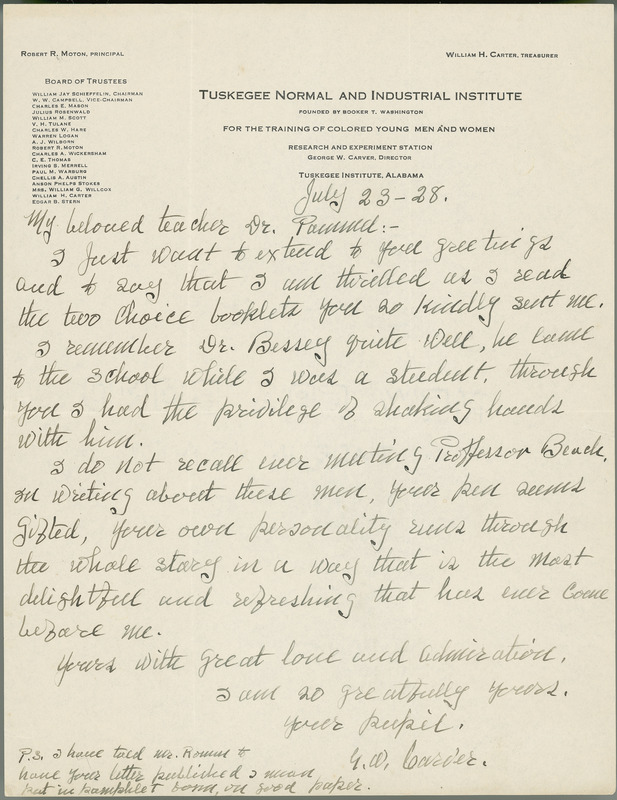 ROBERT R. MOTON, PRINCIPAL
WILLIAM H. CARTER, TREASURER
BOARD OF TRUSTEES
WILLIAM JAY SCHIEFFELIN, CHAIRMAN
W. W. CAMPBELL, VICE-CHAIRMAN
CHARLES E. MASON
JULIUS ROSENWALD
WILLIAM M. SCOTT
V. H. TULANE
CHARLES W. HARE
WARREN LOGAN
A. J. WILBORN
ROBERT R. MOTON
CHARLES A. WICKERSHAM
C. E. THOMAS
IRVING S. MERRELL
PAUL M. WARBURG
CHELLIS A. AUSTIN
ANSON PHELPS STOKES
MRS. WILLIAM G. WILLCOX
WILLIAM H. CARTER
EDGAR B. STERN
TUSKEGEE NORMAL AND INDUSTRIAL INSTITUTE
FOUNDED BY BOOKER T. WASHINGTON
FOR THE TRAINING OF COLORED YOUNG MEN AND WOMEN
RESEARCH AND EXPERIMENT STATION
GEORGE W. CARVER, DIRECTOR
TUSKEGEE INSTITUTE, ALABAMA
July 23-28.
My beloved teacher Dr. Pammel:-
I Just want to extend to you greetings
and to say that I am thrilled as I read
the two choice booklets you so kindly sent me.
I remember Dr. Bessey quite well, he came
to the school while I was a student, through
you I had the privilege of shaking hands
with him.
I do not recall ever meeting Professor Beach,
in writing about these men, your pen seems
gifted, your own personality runs through
the whole story in a way that is the most
delightful and refreshing that has ever come
before me.
Yours with great love and admiration.
I am so greatfully yours.
Your pupil.
G. W. Carver.
P.S. I have told Mr.
have your letter published I mean
put in pamphlet form, on good paper.